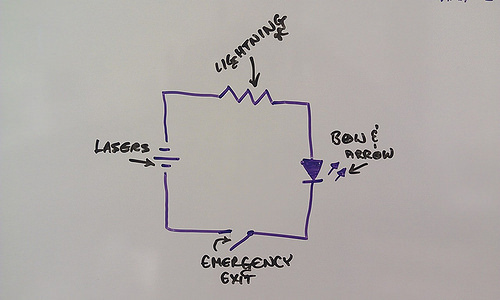 LIGHTNING
LASERS
BOW &
ARROW
EMERGENCY
EXIT